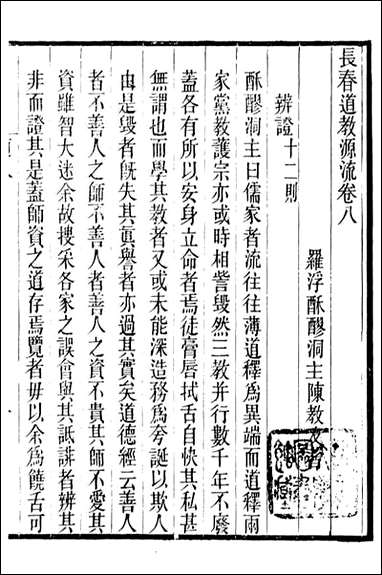 長春道教源流卷八
羅浮酥醪洞主陳教友
辨證十二則
酥醪洞主曰儒家者流往往薄道釋爲異端而道釋兩
家黨教護宗亦或時相訾毀然三教并行數千年不廢
蓋各有所以安身立命者焉徒膏唇拭舌自快其私甚
無謂也而學其教者又或未能深造務爲夸誕以欺人
由是毀者既失其眞譽者亦過其實矣道德經云善人
者不善人之師不善人者善人之資不貴其師不愛其
資雖智大迷余故摟采各家之誤會與其詆誹者辨其
非而證其是蓋師資之道存焉覽者毋以余爲饒舌可